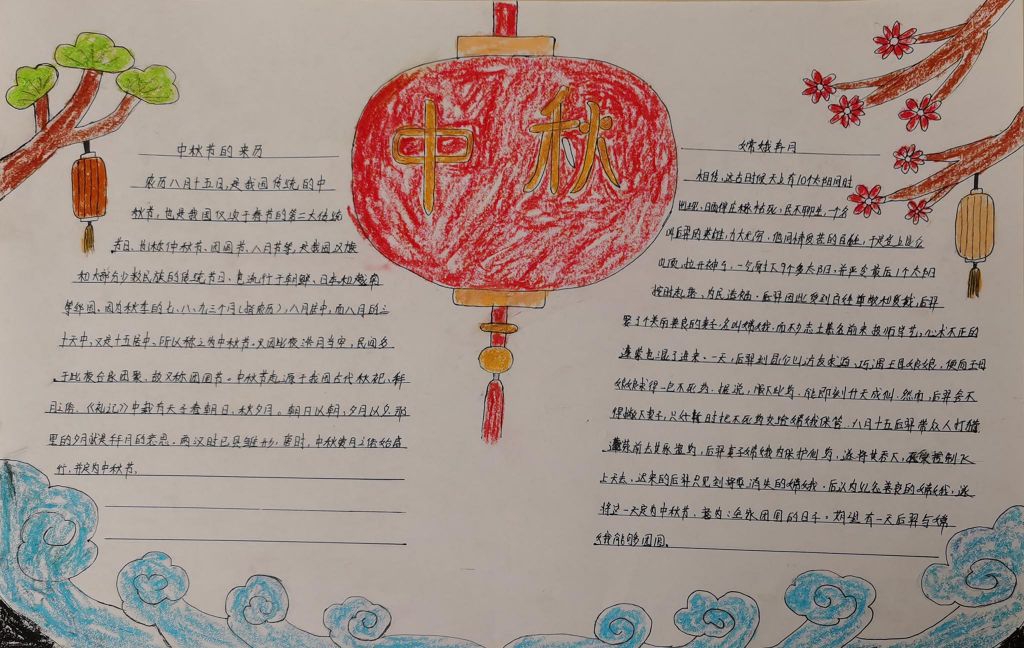 中秋
中秋节的来历
农历八月十五日,是我国传统的中
秋节,也是我国仅次于春节的第二大传统
节日、别称仲秋节、团圆节、八月节等,是我国汉族
和大部分少数民族的传统节日、也流行于朝鲜、日本和越南
等邻国、因为秋季的七、八、九三个月(指农历),八月居中,而八月的三
十天中,又是十五居中、所以称之为中秋节。又因此夜浩月当空,民间多
于此夜合家团聚,故又称团圆节。中秋节起源于我国古代秋祀、拜
月之俗、《礼记》中载有天子春朝日,秋夕月。朝日以朝,夕月以夕,那
里的夕月就是拜月的意思。两汉时已具雏形,唐时,中秋赏月之俗始盛
行,并定为中秋节,
嫦娥奔月
相传,远古时候天上有10个太阳同时
出现,晒得庄稼枯死,民不聊生,一个名
叫后羿的英雄,力大无穷,他同情受苦的百姓,于是登上昆仑
山顶,拉开神弓,一气射下9个多太阳,并严令最后1个太阳
按时起落,为民造福。后羿因此受到百姓尊敬和爱戴,后羿
娶了个美丽善良的妻子,名叫嫦娥.而不少志士慕名前来投师学艺,心术不正的
蓬蒙也混了进来、一天,后羿到昆仑山访友求道,巧遇王母娘娘,便向王母
娘娘求得一包不死药.据说,服下此药,能即刻升天成仙.然而,后羿舍不
得撇下妻子,只好暂时把不死药交给嫦娥保管.八月十五后羿带众人打猎
上天去,迟来的后羿只见到将要消失的嫦娥,后以为纪念善良的嫦娥,遂
将这一天定为中秋节,
有一天后羿与嫦
娥能够团圆。